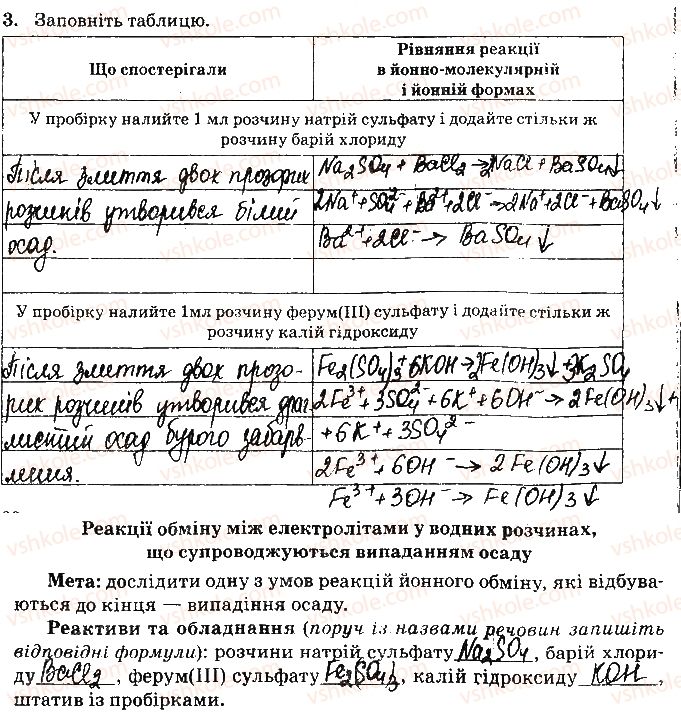 3. Заповніть таблицю.
Що спостерігали
Рівняння реакції
в йонно-молекулярній
і йонній формах
У пробірку налийте 1 мл розчину натрій сульфату і додайте стільки ж
розчину барій хлориду
Після злиття двох прозорих
розчинів утворився білий
осад.
Na₂SO₄ + BaCl₂ → 2NaCl + BaSO₄↓
2Na⁺ + SO₄²⁻ + Ba²⁺ + 2Cl⁻ → 2Na⁺ + 2Cl⁻ + BaSO₄↓
Ba²⁺ + 2Cl⁻ → BaSO₄↓
У пробірку налийте 1мл розчину ферум(III) сульфату і додайте стільки ж
розчину калій гідроксиду
Після злиття двох прозо-
рих розчинів утворився драг-
листий осад бурого забарв-
лення.
Fe₂(SO₄)₃ + 6KOH → 2Fe(OH)₃↓ + 3K₂SO₄
2Fe³⁺ + 3SO₄²⁻ + 6K⁺ + 6OH⁻ → 2Fe(OH)₃↓ +
+ 6K⁺ + 3SO₄²⁻
2Fe³⁺ + 6OH⁻ → 2Fe(OH)₃↓
Fe³⁺ + 3OH⁻ → Fe(OH)₃↓
Реакції обміну між електролітами у водних розчинах,
що супроводжуються випаданням осаду
Мета: дослідити одну з умов реакцій йонного обміну, які відбува-
ються до кінця — випадіння осаду.
Реактиви та обладнання (поруч із назвами речовин запишіть
відповідні формули): розчини натрій сульфату Na₂SO₄, барій хлори-
ду BaCl₂, ферум(III) сульфату Fe₂(SO₄)₃, калій гідроксиду KOH,
штатив із пробірками.